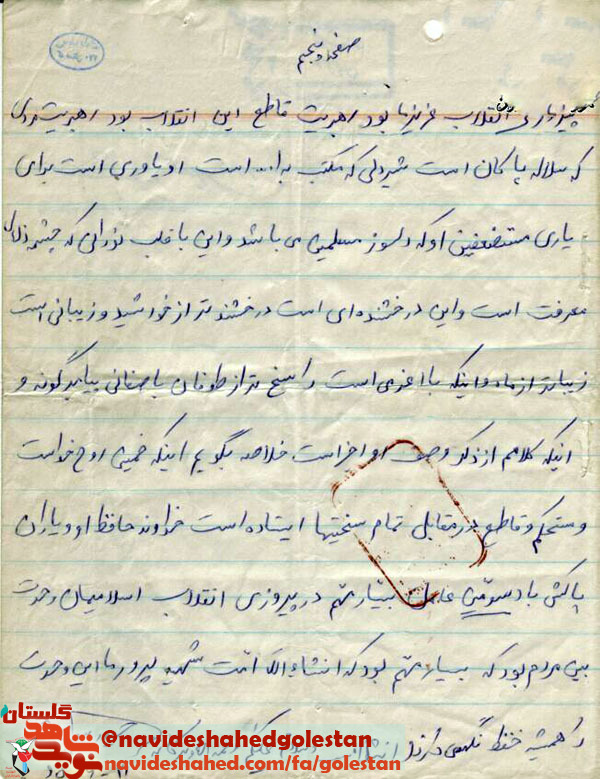 صفحه پنجم
پیروزی انقلاب عزیزما بود رهبریت قاطع این انقلاب بود رهبریت مردی
که سلاله پاکان است شیردلی که مکتب به ا... است او یاوری است برای
یاری مستضعفین او که دلسوز مسلمین می باشد و این با قلب نورانی که چشمه زلال
معرفت است و این درخشنده ای است درخشنده تر از خورشید و زیبائی است
زیباتر از ماه و اینکه با عزمی است راسخ تر از طوفان با صفائی پیامبرگونه و
اینکه کلامم از ذکر وصف او اخراست خلاصه بگویم اینکه خمینی روح خداست
و مستحکم و قاطع در مقابل تمام سختیها ایستاده است خداوند حافظ او و یاران
پاکش باد سومین عامل بسیار مهم در پیروزی انقلاب اسلامیمان وحدت
بین مردم بود که بسیار مهم بود که انشاءالله امت شهید پرور ما این وحدت
را همیشه حفظ نگهمی دارند
گلستان
نوید شاهد
@navideshahedgolestan
navideshahed.com/fa/golestan